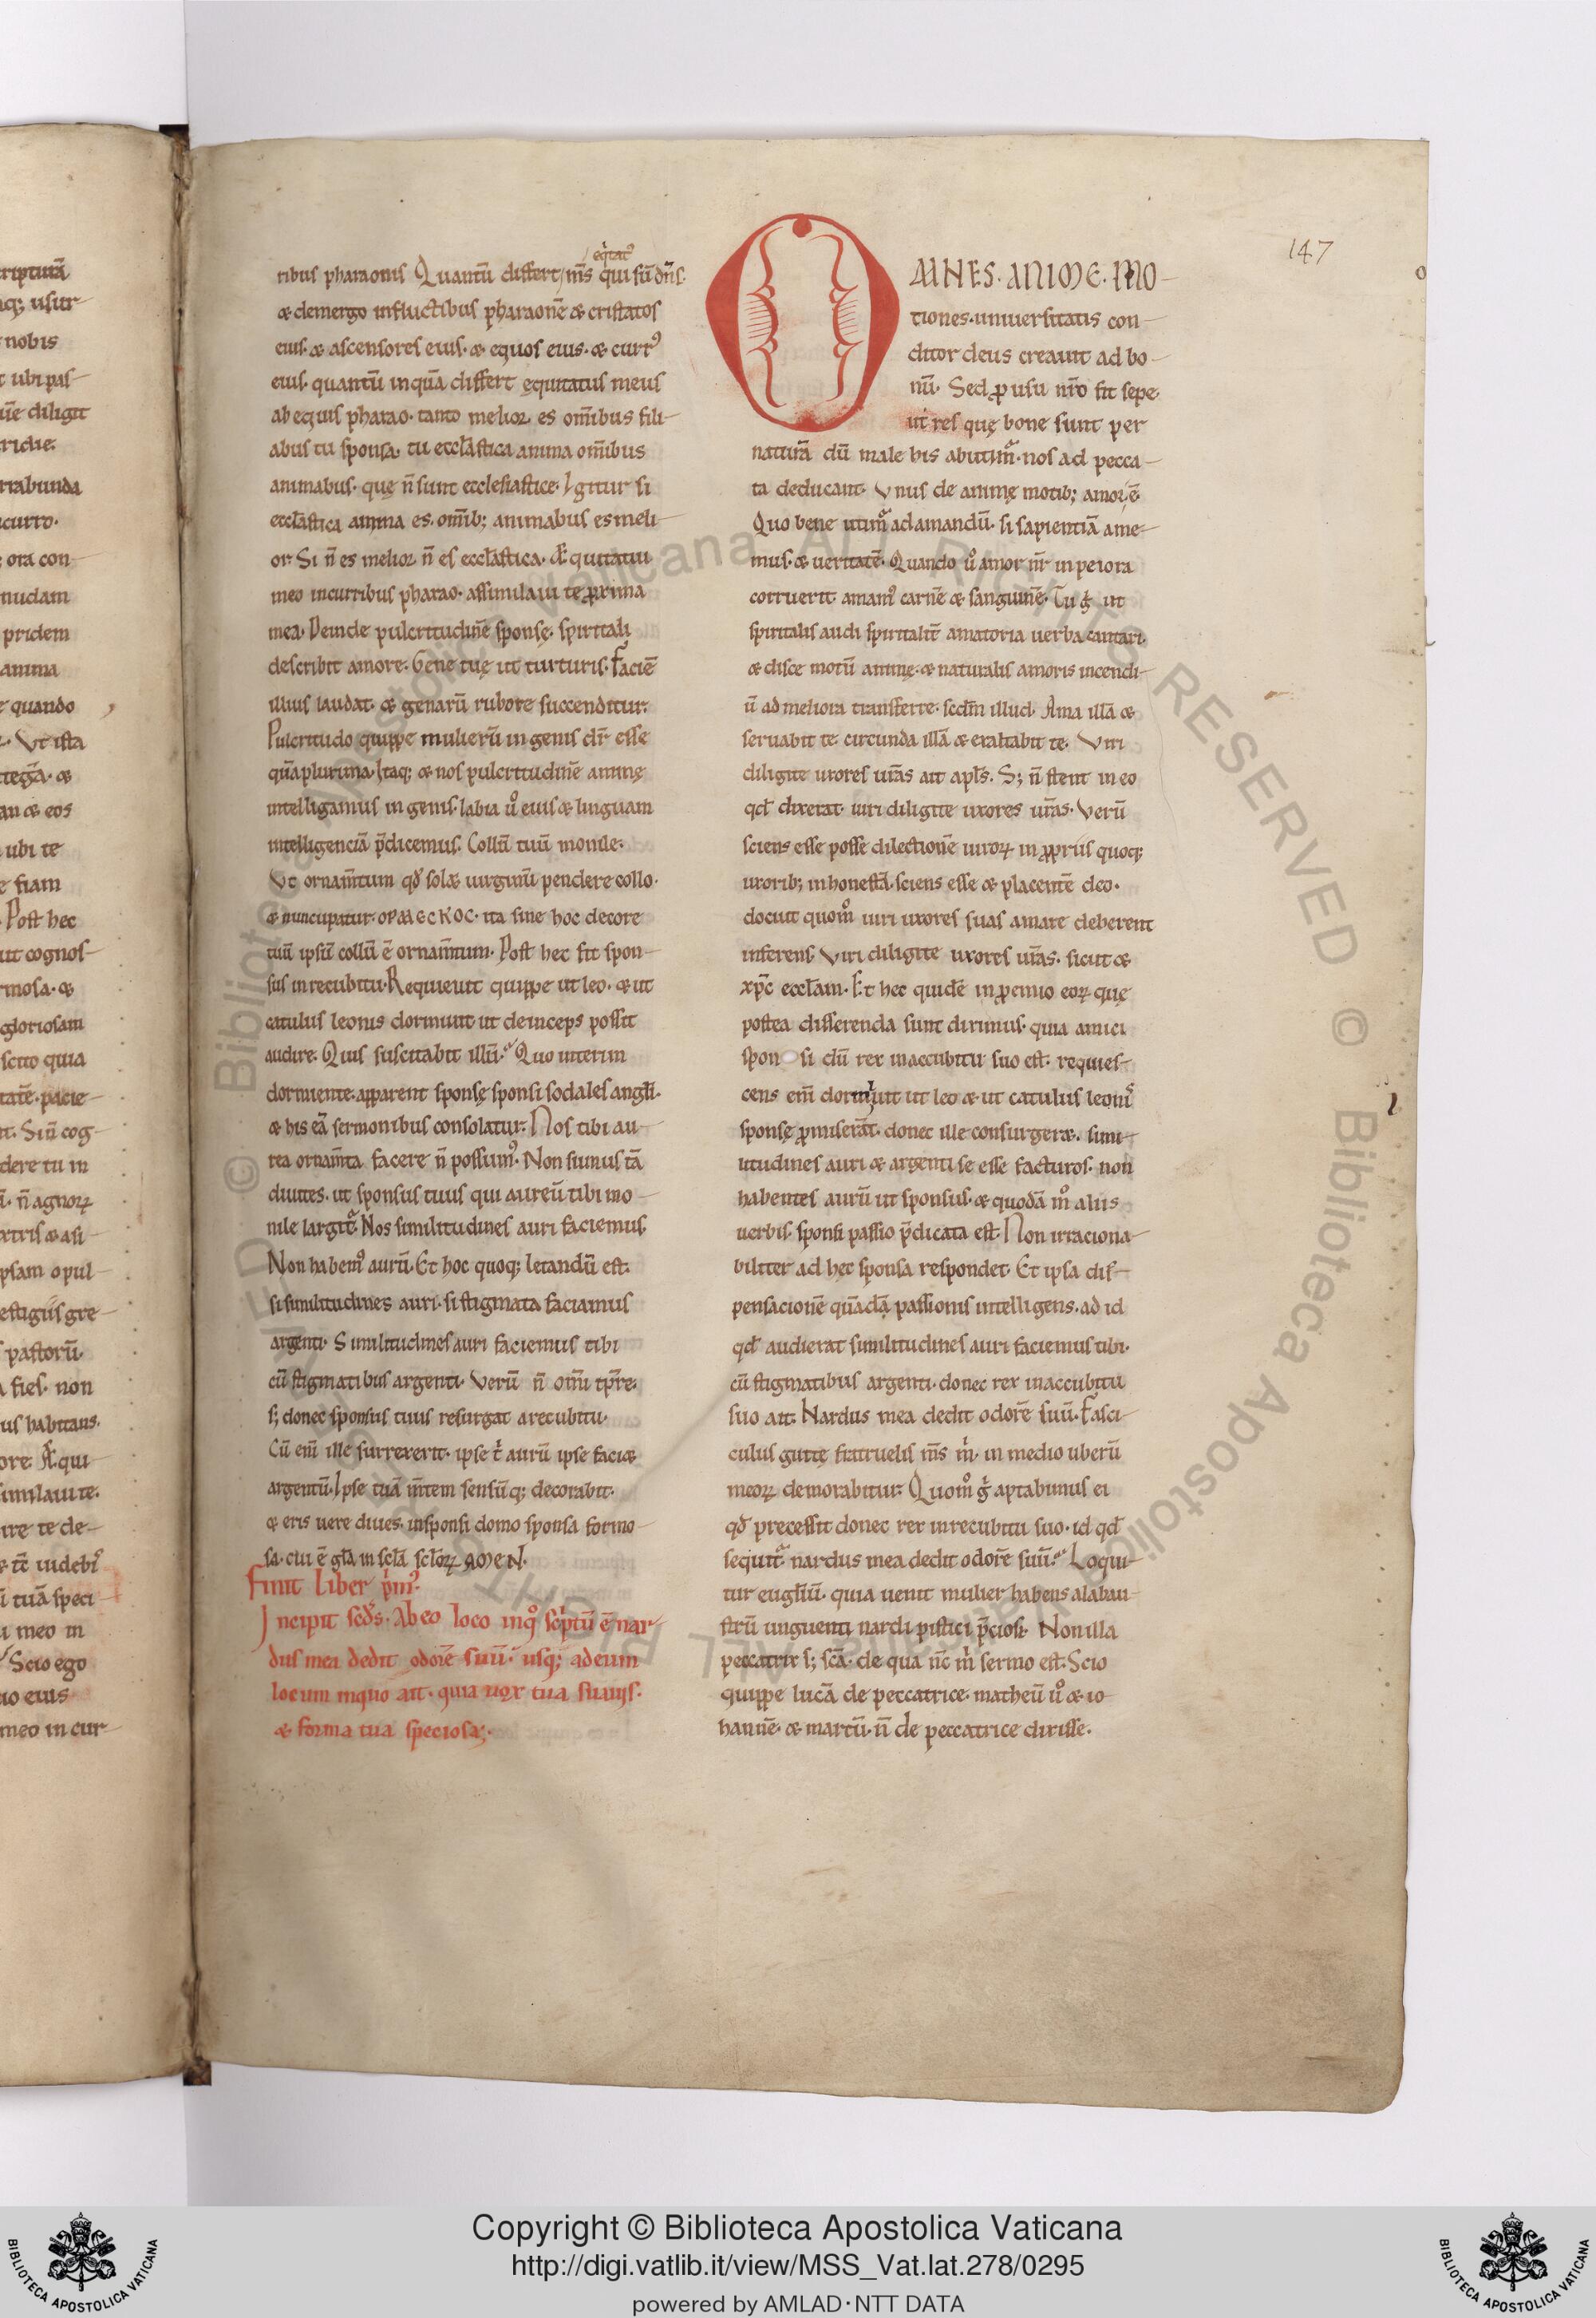 147
eq̄tat᷒
ribus pharaonis Quantū differt m̄s qui sū dn̄s.
& demergo in fluctibus pharaonē & cristatos
eius. & ascensores eius. & equos eius. & curr᷒
eius. quantū inquā differt ęquitatus meus
ab equis pharao. tanto melior es om̄ibus fili-
abus tu sponsa. tu eccl̄astica anima om̄ibus
animabus. quę n̄ sunt ecclesiastice. Igitur si
eccl̄astica anima es. omib; animabus es meli-
or Si n̄ es melior n̄ es eccl̄astica. Æquitatui
meo in curribus pharao. assimilaui te ꝓxima
mea. Deinde pulcritudinē sponsę. spiritali
describit amore. Gene tuę ut turturis. faciē
illius laudat. & genarū rubore succenditur.
Pulcritudo quippe mulierū in genis dr̄ esse
quā plurima. Itaq; & nos pulcritudinē animę
intelligamus in genis. labia u᷒o eius & linguam
intelligenciā p̄dicemus. Collū tuū monile.
Ut ornam̄tum qd̄ sol& uirginū pendere collo.
& nuncupatur. ορμεϲκοϲ. ita sine hoc decore
tuū ipsū collū ē ornam̄tum. Post hec fit spon-
sus in recubitu. Requieuit quippe ut leo. & ut
catulus leonis dormiuit ut deinceps possit
audire. Quis suscitabit illū. Quo interim
dormiente. apparent sponsę sponsi sodales angl̄i.
& his eā sermonibus consolatur. Nos tibi au-
rea ornam̄ta facere n̄ possum᷒. Non sumus tā
diuites. ut sponsus tuus qui aureū tibi mo-
nile largit᷑. Nos similitudines auri faciemus.
Non habem᷒ aurū. Et hoc quoq; letandū est.
si similitudines auri. si stigmata faciamus
argenti. Similitudines auri faciemus tibi
cū stigmatibus argenti. Verū n̄ om̄i tp̄re.
s; donec sponsus tuus resurgat a recubitu.
Cū em̄ ille surrexerit. ipse t̄ aurū ipse faci&
argentū. Ipse tuā m̄tem sensūq; decorabit.
& eris uere diues. in sponsi domo sponsa formo-
sa. cui ē gl̄a in scl̄a scl̄oꝝ AMEN.
finit Liber p̄m᷒.
Incipit sed̄s. Ab eo loco in q᷒ sc̄ptū ē nar-
dus mea dedit odorē suū. usq; ad eum
locum in quo ait. quia uox tua suauis.
& forma tua speciosa;.
OMNES. ANIME. MO-
tiones. uniuersitatis con-
ditor deus creauit ad bo-
nū. Sed ꝓ usu nr̄o fit sepe.
ut res quę bone sunt per
naturā dū male his abutim᷑. nos ad pecca-
ta deducant. Vnus de animę motib; amor ē.
Quo bene utim᷑ ad amandū. si sapientiā ame-
mus. & ueritatē. Quando u᷒o amor nr̄ in peiora
corruerit. amam᷒ carnē & sanguinē. Tu g̊ ut
spiritalis audi spiritalit̄ amatoria uerba cantari.
& disce motū animę. & naturalis amoris incendi-
ū ad meliora transferre. scd̄m illud. Ama illā &
seruabit te. circunda illā & exaltabit te. Viri
diligite uxores ur̄as ait apl̄s. S; n̄ stetit in eo
qd̄ dixerat. uiri diligite uxores ur̄as. Verū
sciens esse posse dilectionē uiroꝝ in ꝓpriis quoq;
uxorib; inhonestā. sciens esse & placentē deo.
docuit quom᷒ uiri uxores suas amare deberent
inferens. Viri diligite uxores ur̄as. sicut &
xp̄c eccl̄am. Et hec quidē in ꝓemio eoꝝ quę
postea disserenda sunt dixim᷒. quia amici
spon si dū rex in accubitu suo est. requies-
cens em̄ dormiuit ut leo & ut catulus leonis
sponsę ꝓmiserāt. donec ille consurger&. simi-
litudines auri & argenti se esse facturos. non
habentes aurū ut sponsus. & quodā m᷒ aliis
uerbis. sponsi passio p̄dicata est. Non irraciona-
biliter ad hec sponsa respondet. Et ipsa dis-
pensacionē quādā passionis intelligens. ad id
qd̄ audierat similitudines auri faciemus tibi.
cū stigmatibus argenti. donec rex in accubitu
suo ait. Nardus mea dedit odorē suū. Fasci-
culus guttę fratruelis m̄s m̄. in medio uberū
meoꝝ demorabitur. Quom᷒ g̊ aptabimus ei
qd̄ precessit donec rex in recubitu suo. id qd̄
sequit᷑. nardus mea dedit odorē suū. Loqui-
tur eugl̄iū. quia uenit mulier habens alabau-
strū unguenti nardi pistici p̄ciosi. Non illa
peccatrix s; sc̄a. de qua nc̄ m̄ sermo est. Scio
quippe lucā de peccatrice. matheū u᷒o & io-
hannē. & marcū. n̄ de peccatrice dixisse.
Copyright © Biblioteca Apostolica Vaticana
http://digi.vatlib.it/view/MSS_Vat.lat.278/0295
powered by AMLAD·NTT DATA